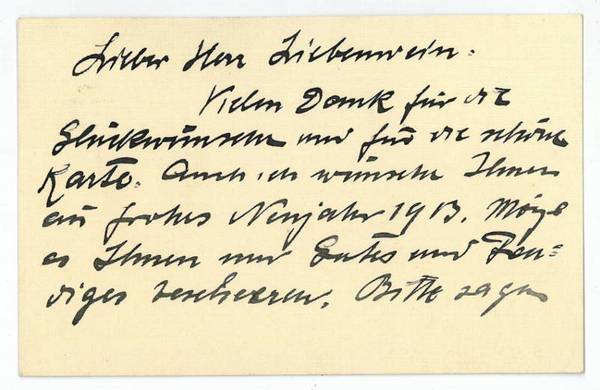 Lieber Herr Liebenwein.
Vielen Dank für die
Glückwünsche und für die schöne
Karte. Auch ich wünsche Ihnen
ein frohes Neujahr 1913. Möge
es Ihnen nur Gutes und Freu=
diges bescheeren. Bitte sagen